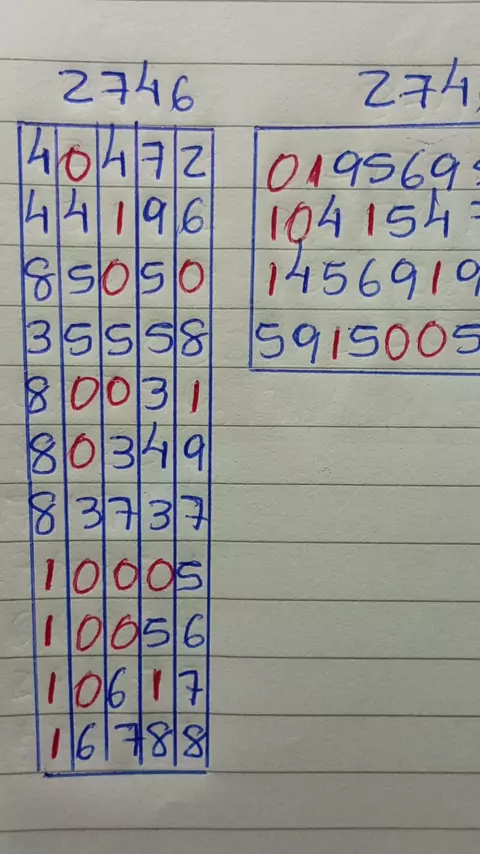 2746
40472
44196
85050
35558
80031
80349
83737
10005
10056
10617
16788
274
019569
104154
1456919
5915005